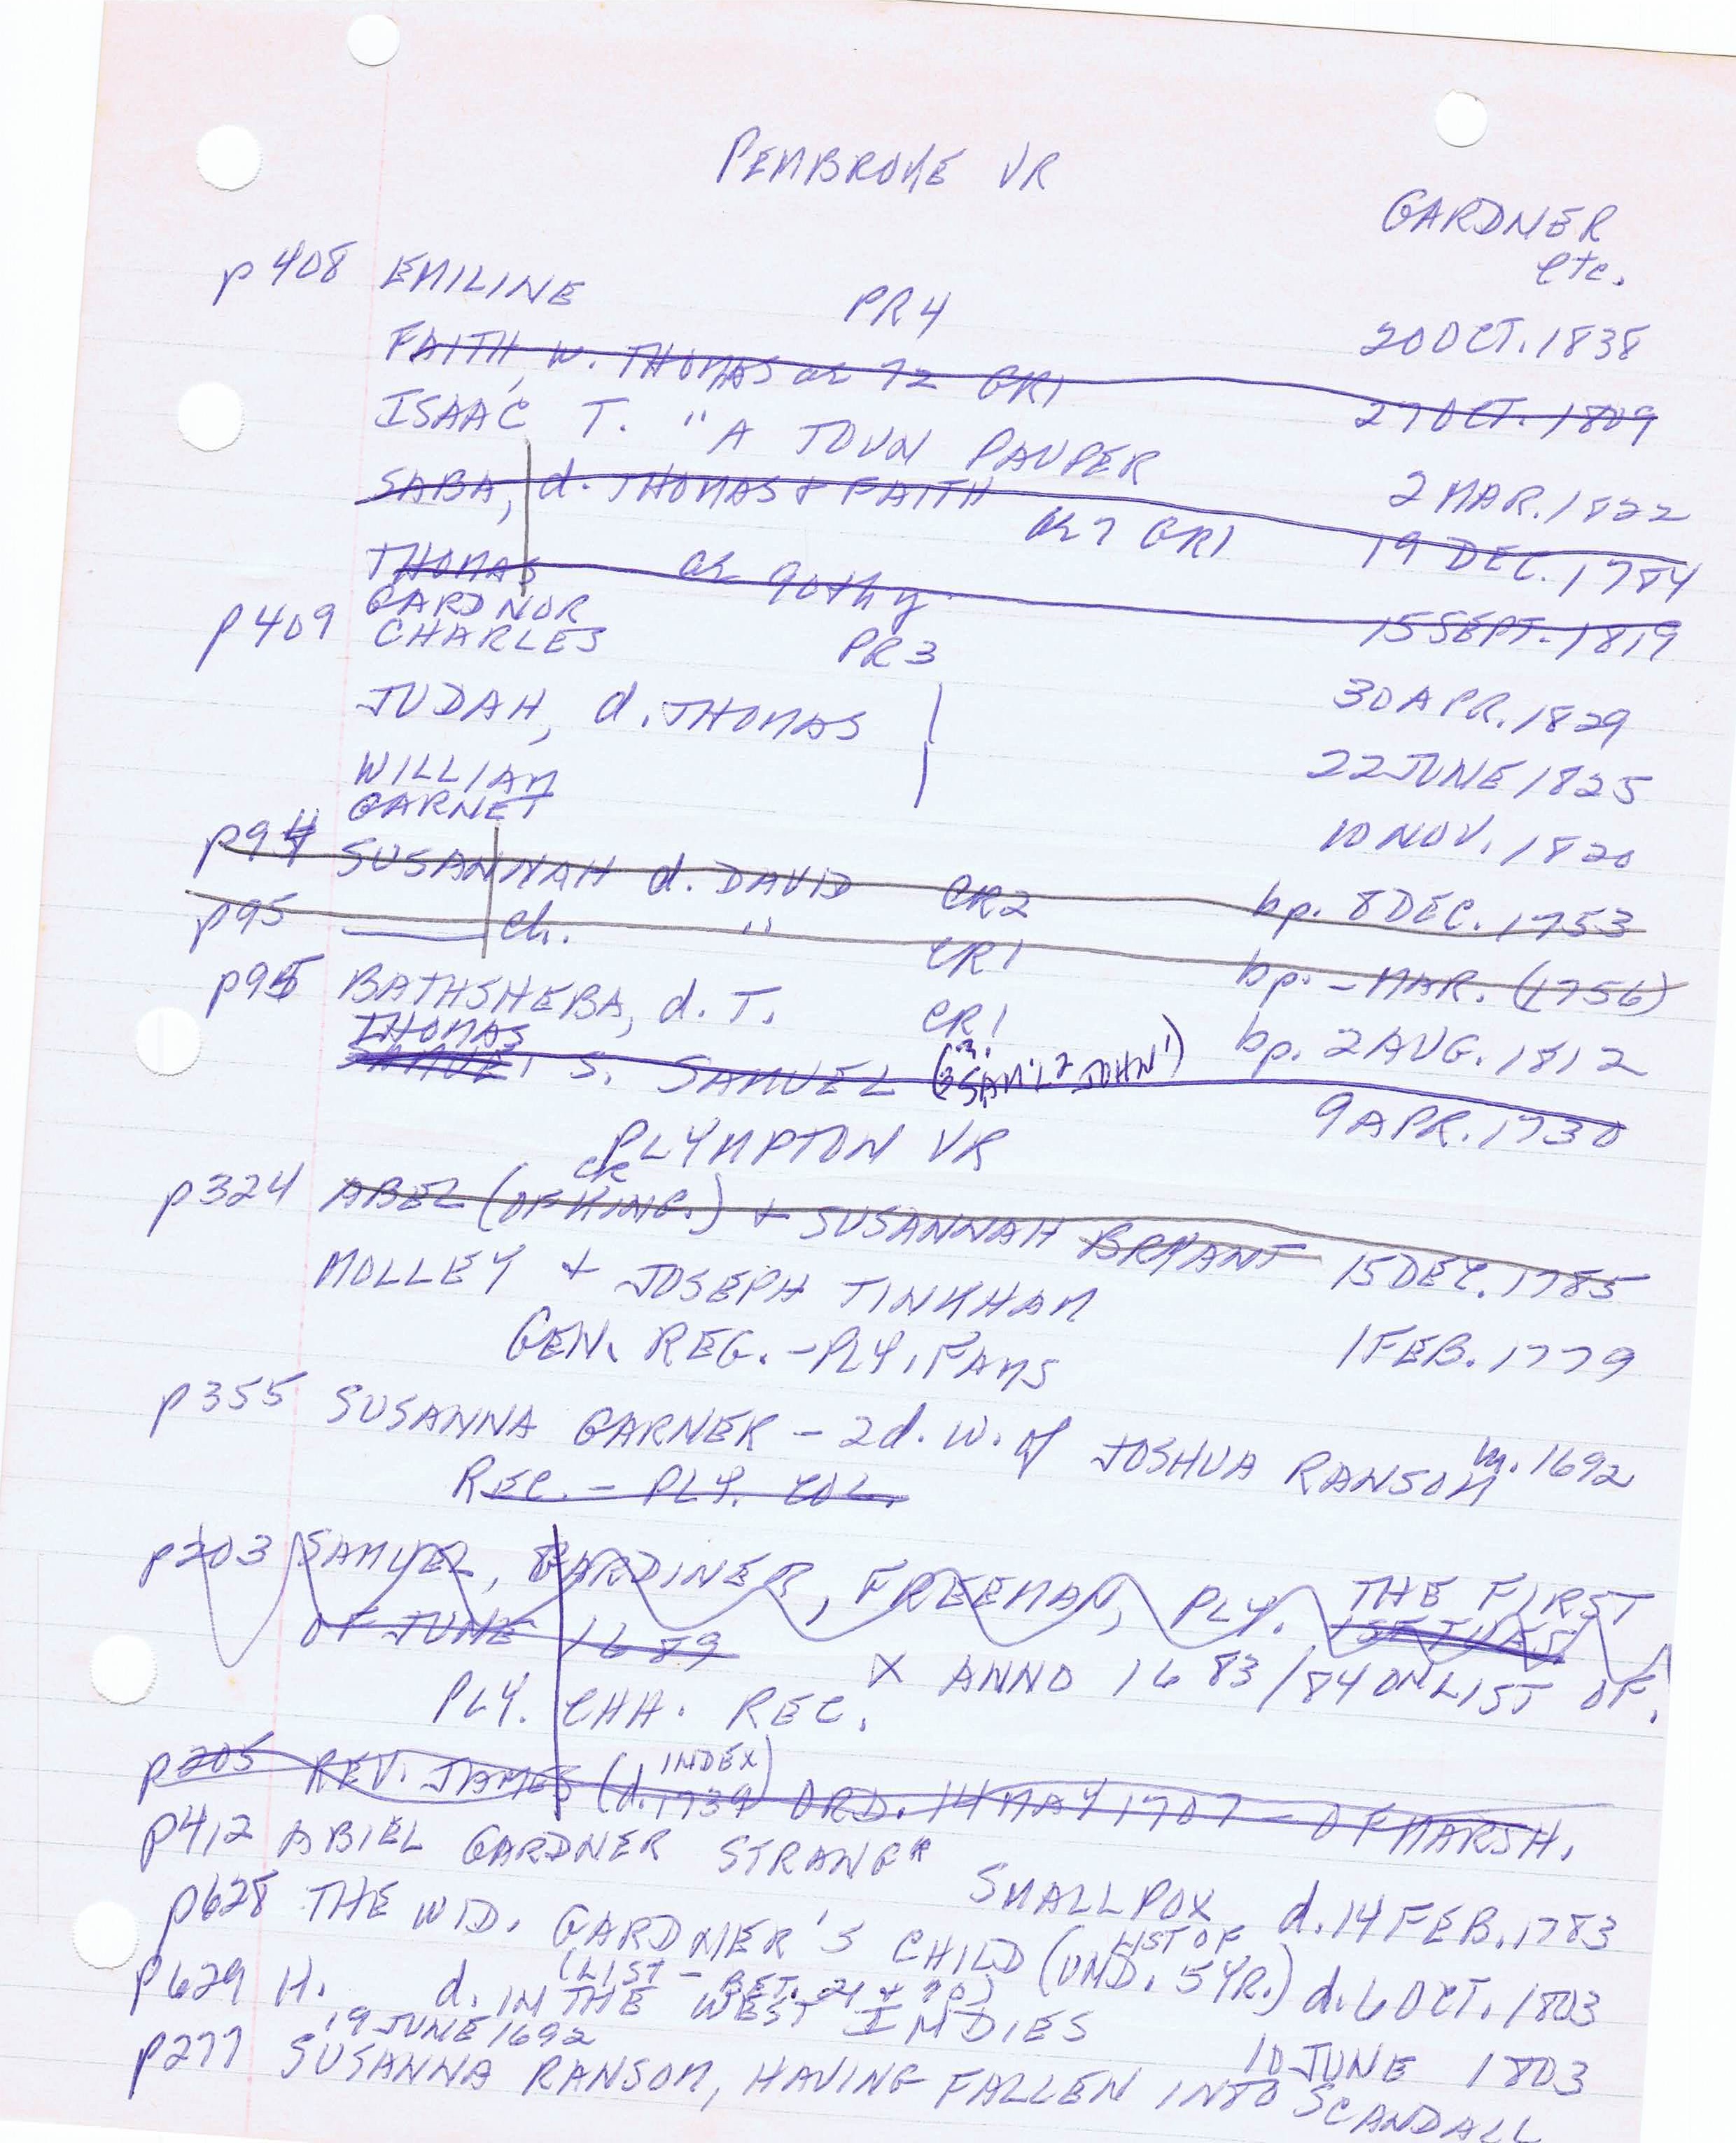 PEMBROKE VR
GARDNER
etc.
p408 EMILINE PR4 20 OCT. 1838
FAITH, w. THOMAS ae 72 GR1 27 OCT. 1809
ISAAC T. "A TOWN PAUPER 2 MAR. 1822
SABA, d. THOMAS & FAITH ae 7 GR1 19 DEC. 1784
THOMAS ae 90th y. 15 SEPT. 1819
GARDNOR
p409 CHARLES PR3 30 APR. 1829
JUDAH, d. THOMAS 22 JUNE 1825
WILLIAM 10 NOV. 1820
GARNET
p94 SUSANNAH d. DAVID CR2 bp. 8 DEC. 1753
p95 ____ ch. " CR1 bp. - MAR. (1756)
p95 BATHSHEBA, d. T. CR1 bp. 2 AUG. 1812
THOMAS
S. SAMUEL (3 SAM'L 2 JOHN 1) 9 APR. 1730
PLYMPTON VR
CR
p324 ABEL (OF KING.) & SUSANNAH BRYANT 15 DEC. 1785
MOLLEY & JOSEPH TINKHAM 1 FEB. 1779
GEN. REG. - PLY. FAMS
p355 SUSANNA GARNER - 2d. w. of JOSHUA RANSOM m. 1692
REC. - PLY. COL.
p203 SAMUEL, GARDINER, FREEMAN, PLY. THE FIRST
OF JUNE 1689 X ANNO 1683/84 ON LIST OF.
PLY. CHH. REC.
INDEX
p205 REV. JAMES (d. 1739) ORD. 14 MAY 1707 - OF MARSH.
p412 ABIEL GARDNER STRANGR SMALLPOX d. 14 FEB. 1783
p628 THE WID. GARDNER'S CHILD (LIST OF UND. 5 YR.) d. 6 OCT. 1803
(LIST - BET. 24 & 90)
p629 H. d. IN THE WEST INDIES 10 JUNE 1803
19 JUNE 1692
p277 SUSANNA RANSOM, HAVING FALLEN INTO SCANDALL